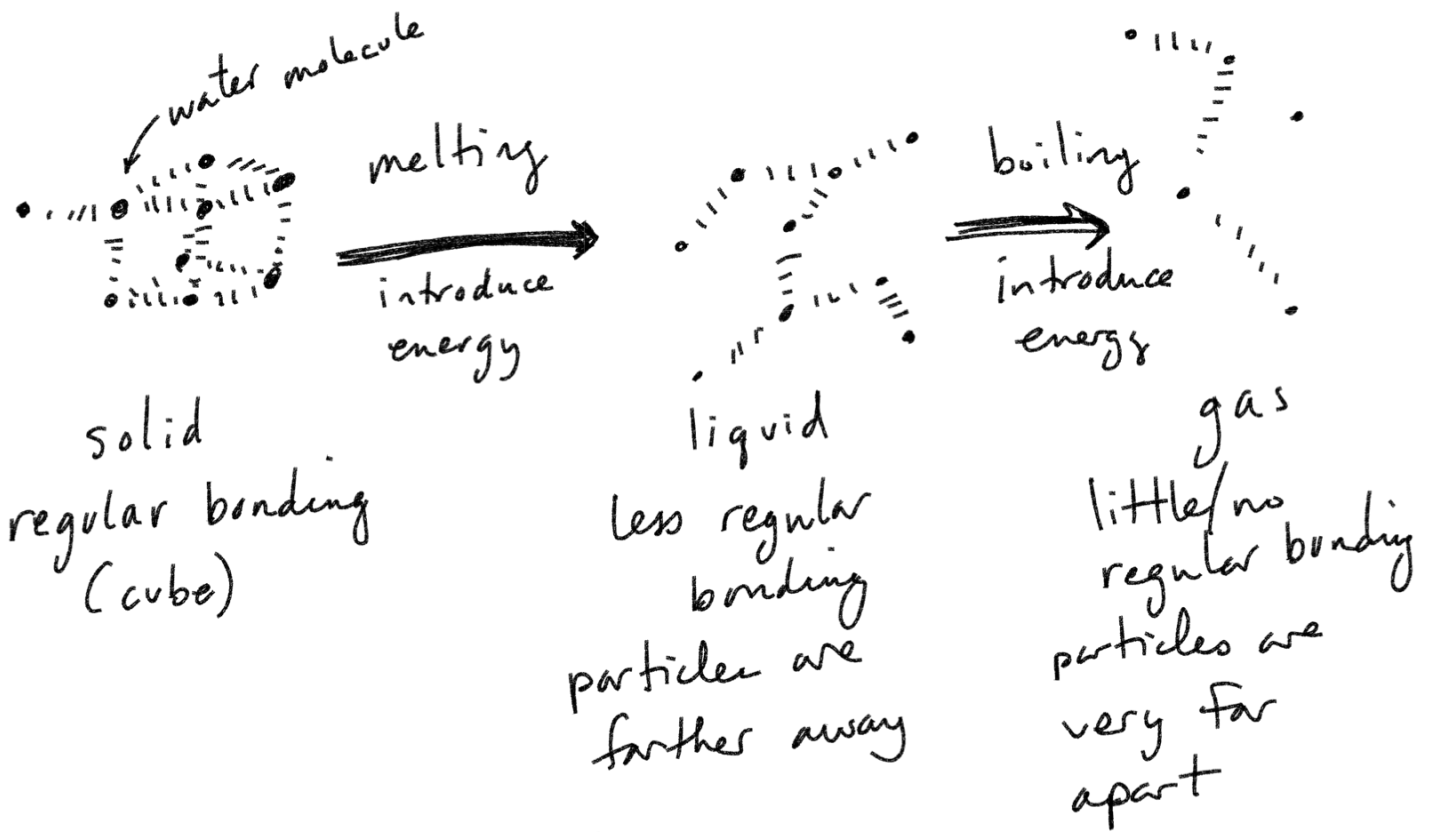 water molecule
melting
introduce
energy
boiling
introduce
energy
solid
regular bonding
(cube)
liquid
less regular
bonding
particles are
farther away
gas
little/no
regular bonding
particles are
very far
apart